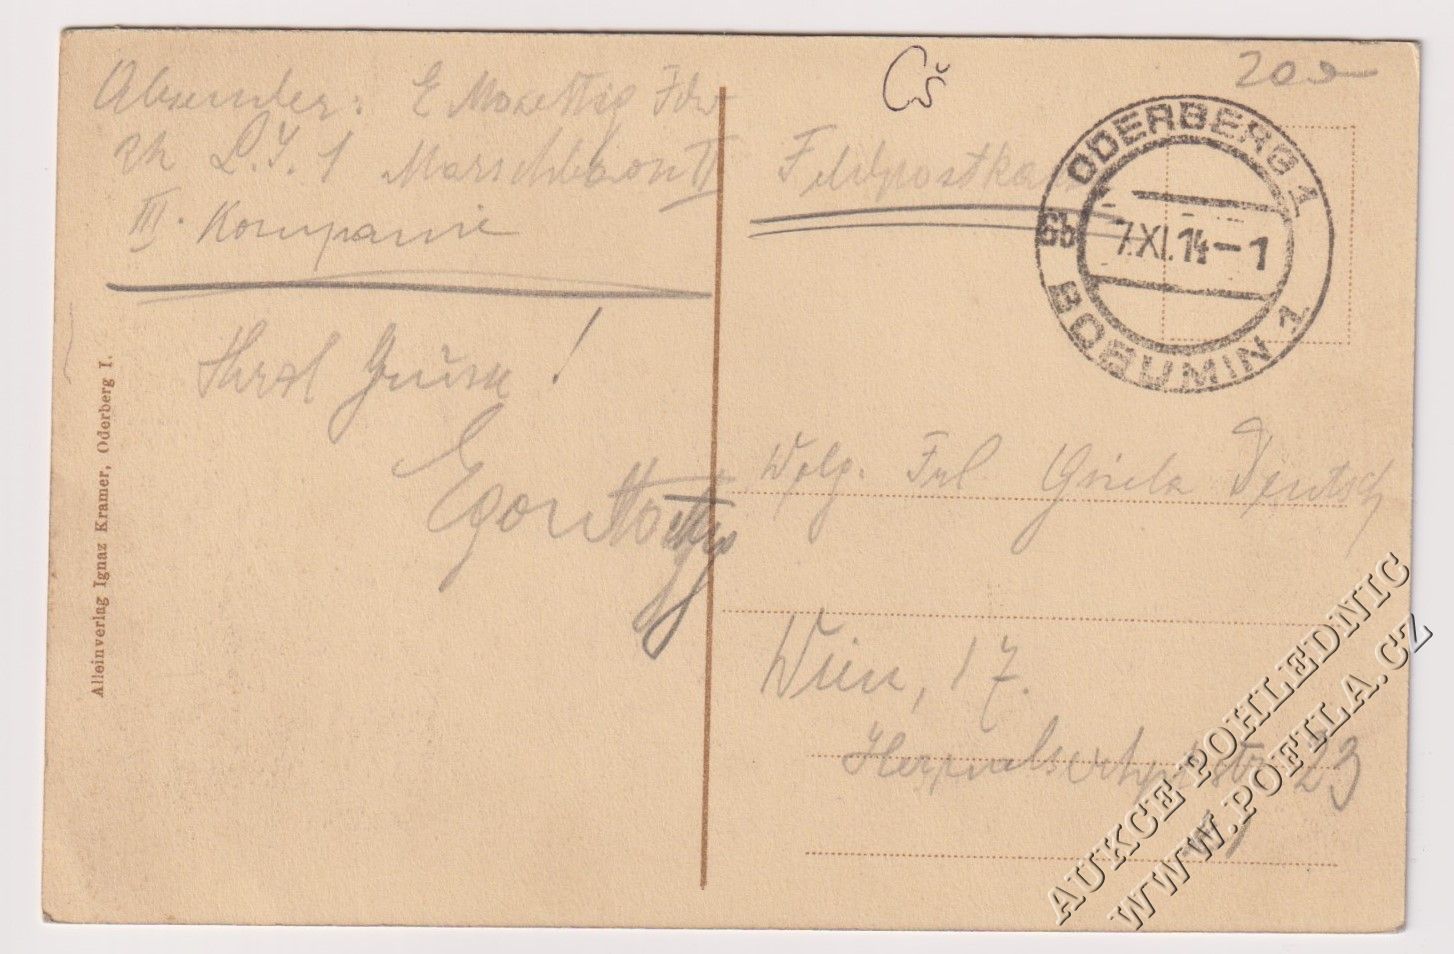 Absender: E Mozettig
L. I. 1 Marschbaon II
III. Kompanie
Herzl Grüsse!
Egon Mozettig
Alleinverlag Ignaz Kramer, Oderberg I.
Čš
20
Feldpostkarte
ODERBERG 1
6b 7.XI.14-1
BOGUMIN 1
Wolg. Frl Gisela Deutsch
Wien, 17.
23
AUKCE POHLEDNIC
WWW.POFILA.CZ